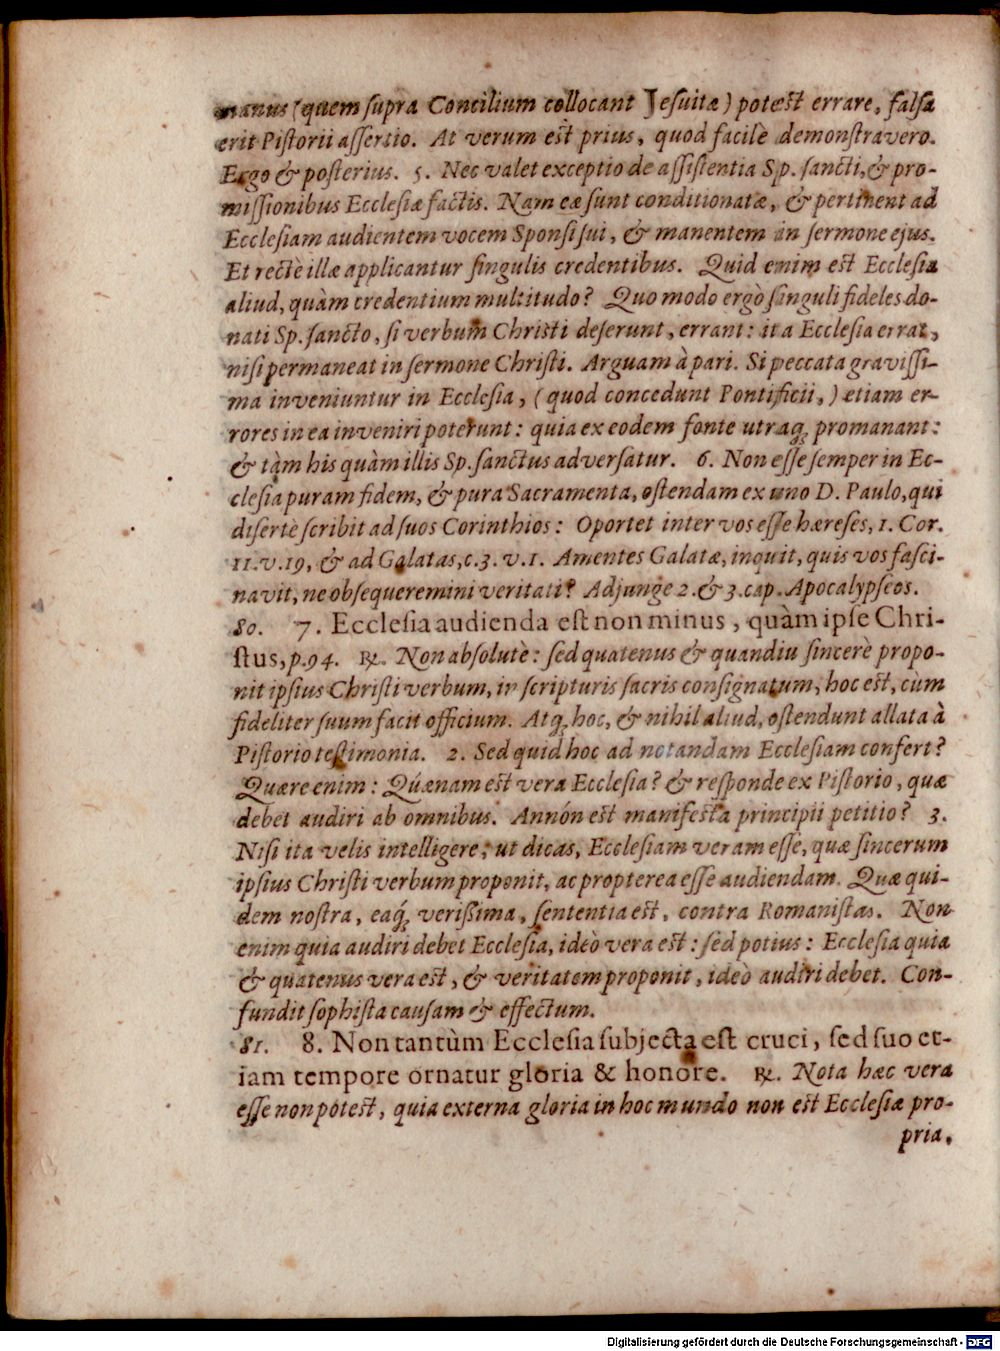 manus (quem supra Concilium collocant Jesuitæ) potest errare, falsa
erit Pistorii assertio. At verum est prius, quod facilè demonstravero.
Ergo & posterius. 5. Nec valet exceptio de assistentia Sp. sancti, & pro-
missionibus Ecclesiæ factis. Nam eæ sunt conditionatæ, & pertinent ad
Ecclesiam audientem vocem Sponsi sui, & manentem in sermone ejus.
Et rectè illæ applicantur singulis credentibus. Quid enim est Ecclesia
aliud, quàm credentium multitudo? Quo modo ergò singuli fideles do-
nati Sp. sancto, si verbum Christi deserunt, errant: ita Ecclesia errat,
nisi permaneat in sermone Christi. Arguam à pari. Si peccata gravissi-
ma inveniuntur in Ecclesia, (quod concedunt Pontificii,) etiam er-
rores in ea inveniri poterunt: quia ex eodem fonte utraq; promanant:
& tàm his quàm illis Sp. sanctus adversatur. 6. Non esse semper in Ec-
clesia puram fidem, & pura Sacramenta, ostendam ex uno D. Paulo, qui
disertè scribit ad suos Corinthios: Oportet inter vos esse hæreses, 1. Cor.
11. v. 19, & ad Galatas, c. 3. v. 1. Amentes Galatæ, inquit, quis vos fasci-
navit, ne obsequeremini veritati? Adjunge 2. & 3. cap. Apocalypseos.
80. 7. Ecclesia audienda est non minus, quàm ipse Chri-
stus, p. 94. ℞. Non absolutè: sed quatenus & quandiu sincerè propo-
nit ipsius Christi verbum, in scripturis sacris consignatum, hoc est, cùm
fideliter suum facit officium. Atq; hoc, & nihil aliud, ostendunt allata à
Pistorio testimonia. 2. Sed quid hoc ad notandam Ecclesiam confert?
Quære enim: Quænam est vera Ecclesia? & responde ex Pistorio, quæ
debet audiri ab omnibus. Annón est manifesta principii petitio? 3.
Nisi ita velis intelligere, ut dicas, Ecclesiam veram esse, quæ sincerum
ipsius Christi verbum proponit, ac propterea esse audiendam. Quæ qui-
dem nostra, eaq; verißima, sententia est, contra Romanistas. Non
enim quia audiri debet Ecclesia, ideò vera est: sed potius: Ecclesia quia
& quatenus vera est, & veritatem proponit, ideò audiri debet. Con-
fundit sophista causam & effectum.
81. 8. Non tantùm Ecclesia subjecta est cruci, sed suo et-
iam tempore ornatur gloria & honore. ℞. Nota hæc vera
esse non potest, quia externa gloria in hoc mundo non est Ecclesiæ pro-
pria,
Digitalisierung gefördert durch die Deutsche Forschungsgemeinschaft - DFG